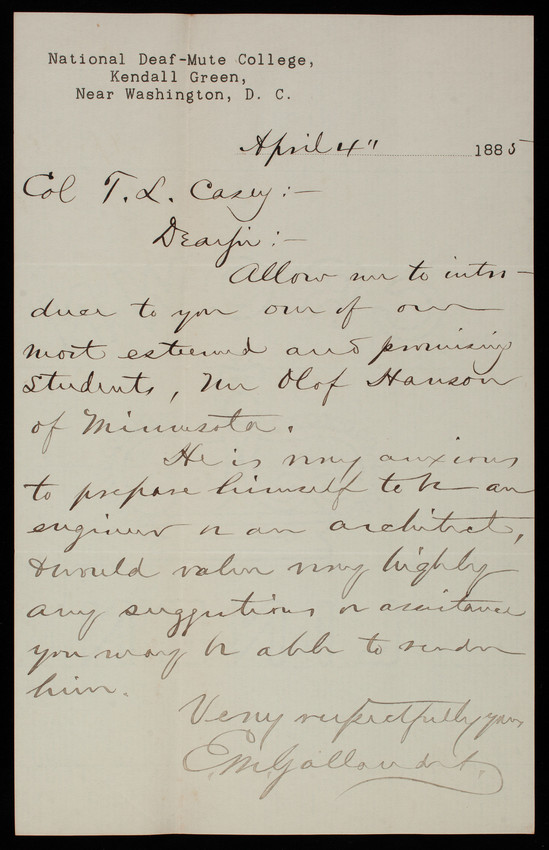 National Deaf-Mute College,
Kendall Green,
Near Washington, D. C.
April 4" 1885
Col T. L. Casey :—
Dear Sir :—
Allow me to intro-
duce to you one of our
most esteemed and promising
students, Mr Olof Hanson
of Minnesota.
He is very anxious
to prepare himself to be an
engineer or an architect,
& would value very highly
any suggestions or assistance
you may be able to render
him.
Very respectfully yours
E. M. Gallaudet.